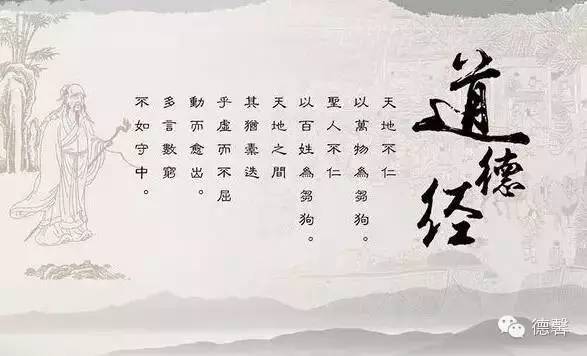 道德经
天地不仁
以萬物為芻狗。
聖人不仁
以百姓為芻狗。
天地之間
其猶橐迭
乎虛而不屈
動而愈出。
多言數窮
不如守中。
德馨